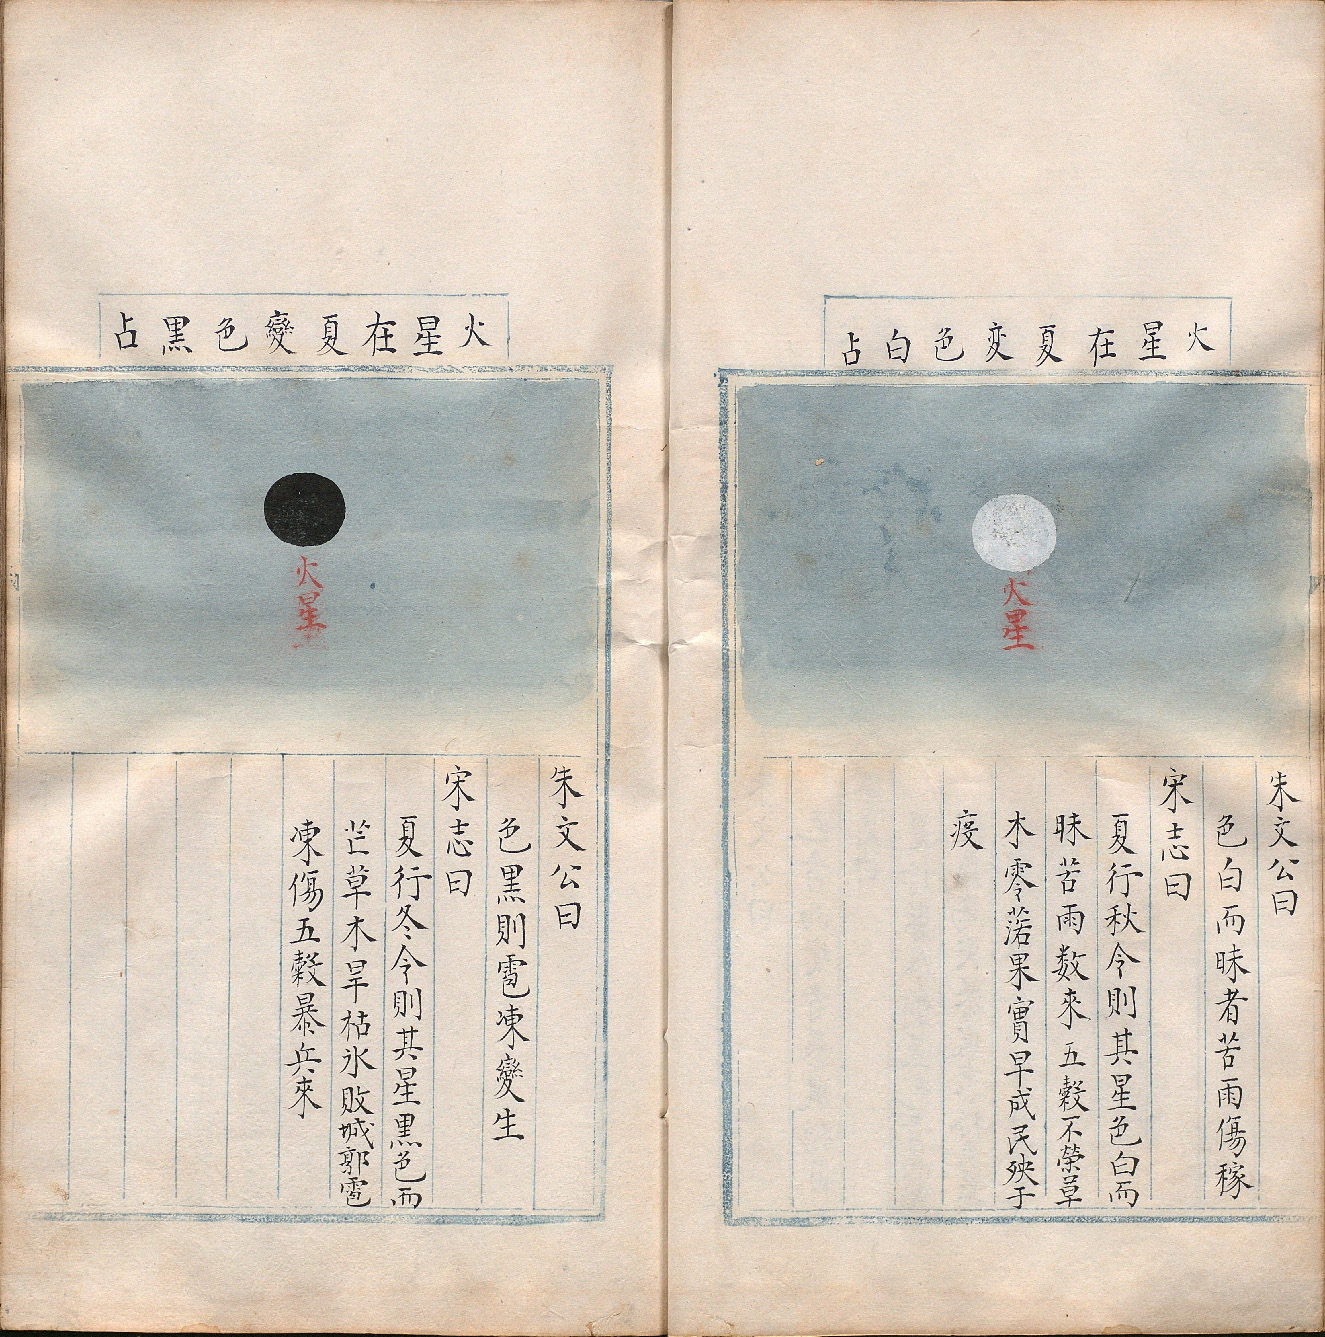 火星在夏変色白占
火星
朱文公曰
色白而昧者苦雨傷稼
宋志曰
夏行秋令則其星色白而
昧苦雨数來五穀不榮草
木零落果實早成民殃于
疫
火星在夏變色黑占
火星
朱文公曰
色黒則雹凍變生
宋志曰
夏行冬令則其星黒色而
芒草木旱枯氷敗城郭雹
凍傷五穀暴兵來